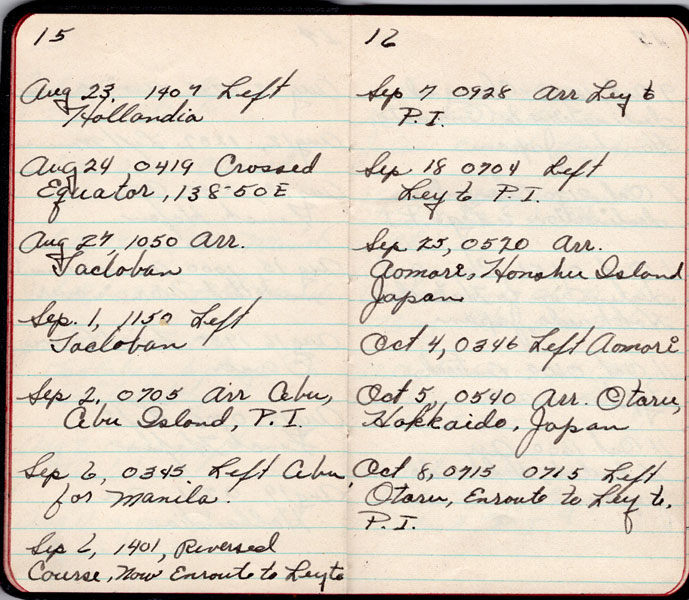 15
Aug 23, 1407 Left
Hollandia
Aug 24, 0419 Crossed
Equator, 138-50E
Aug 27, 1050 Arr.
Tacloban
Sep. 1, 1157 Left
Tacloban
Sep 2, 0705 arr Cebu,
Cebu Island, P.I.
Sep 6, 0345 Left Cebu,
for Manila.
Sep 6, 1401, Reversed
Course, Now Enroute to Leyte
16
Sep 7 0928 Arr Leyte
P.I.
Sep 18 0704 Left
Leyte P.I.
Sep 25, 0520 Arr.
Aomori, Honshu Island
Japan
Oct 4, 0346 Left Aomori
Oct 5, 0540 Arr. Otaru,
Hokkaido, Japan
Oct 8, 0715 0715 Left
Otaru, Enroute to Leyte,
P.I.